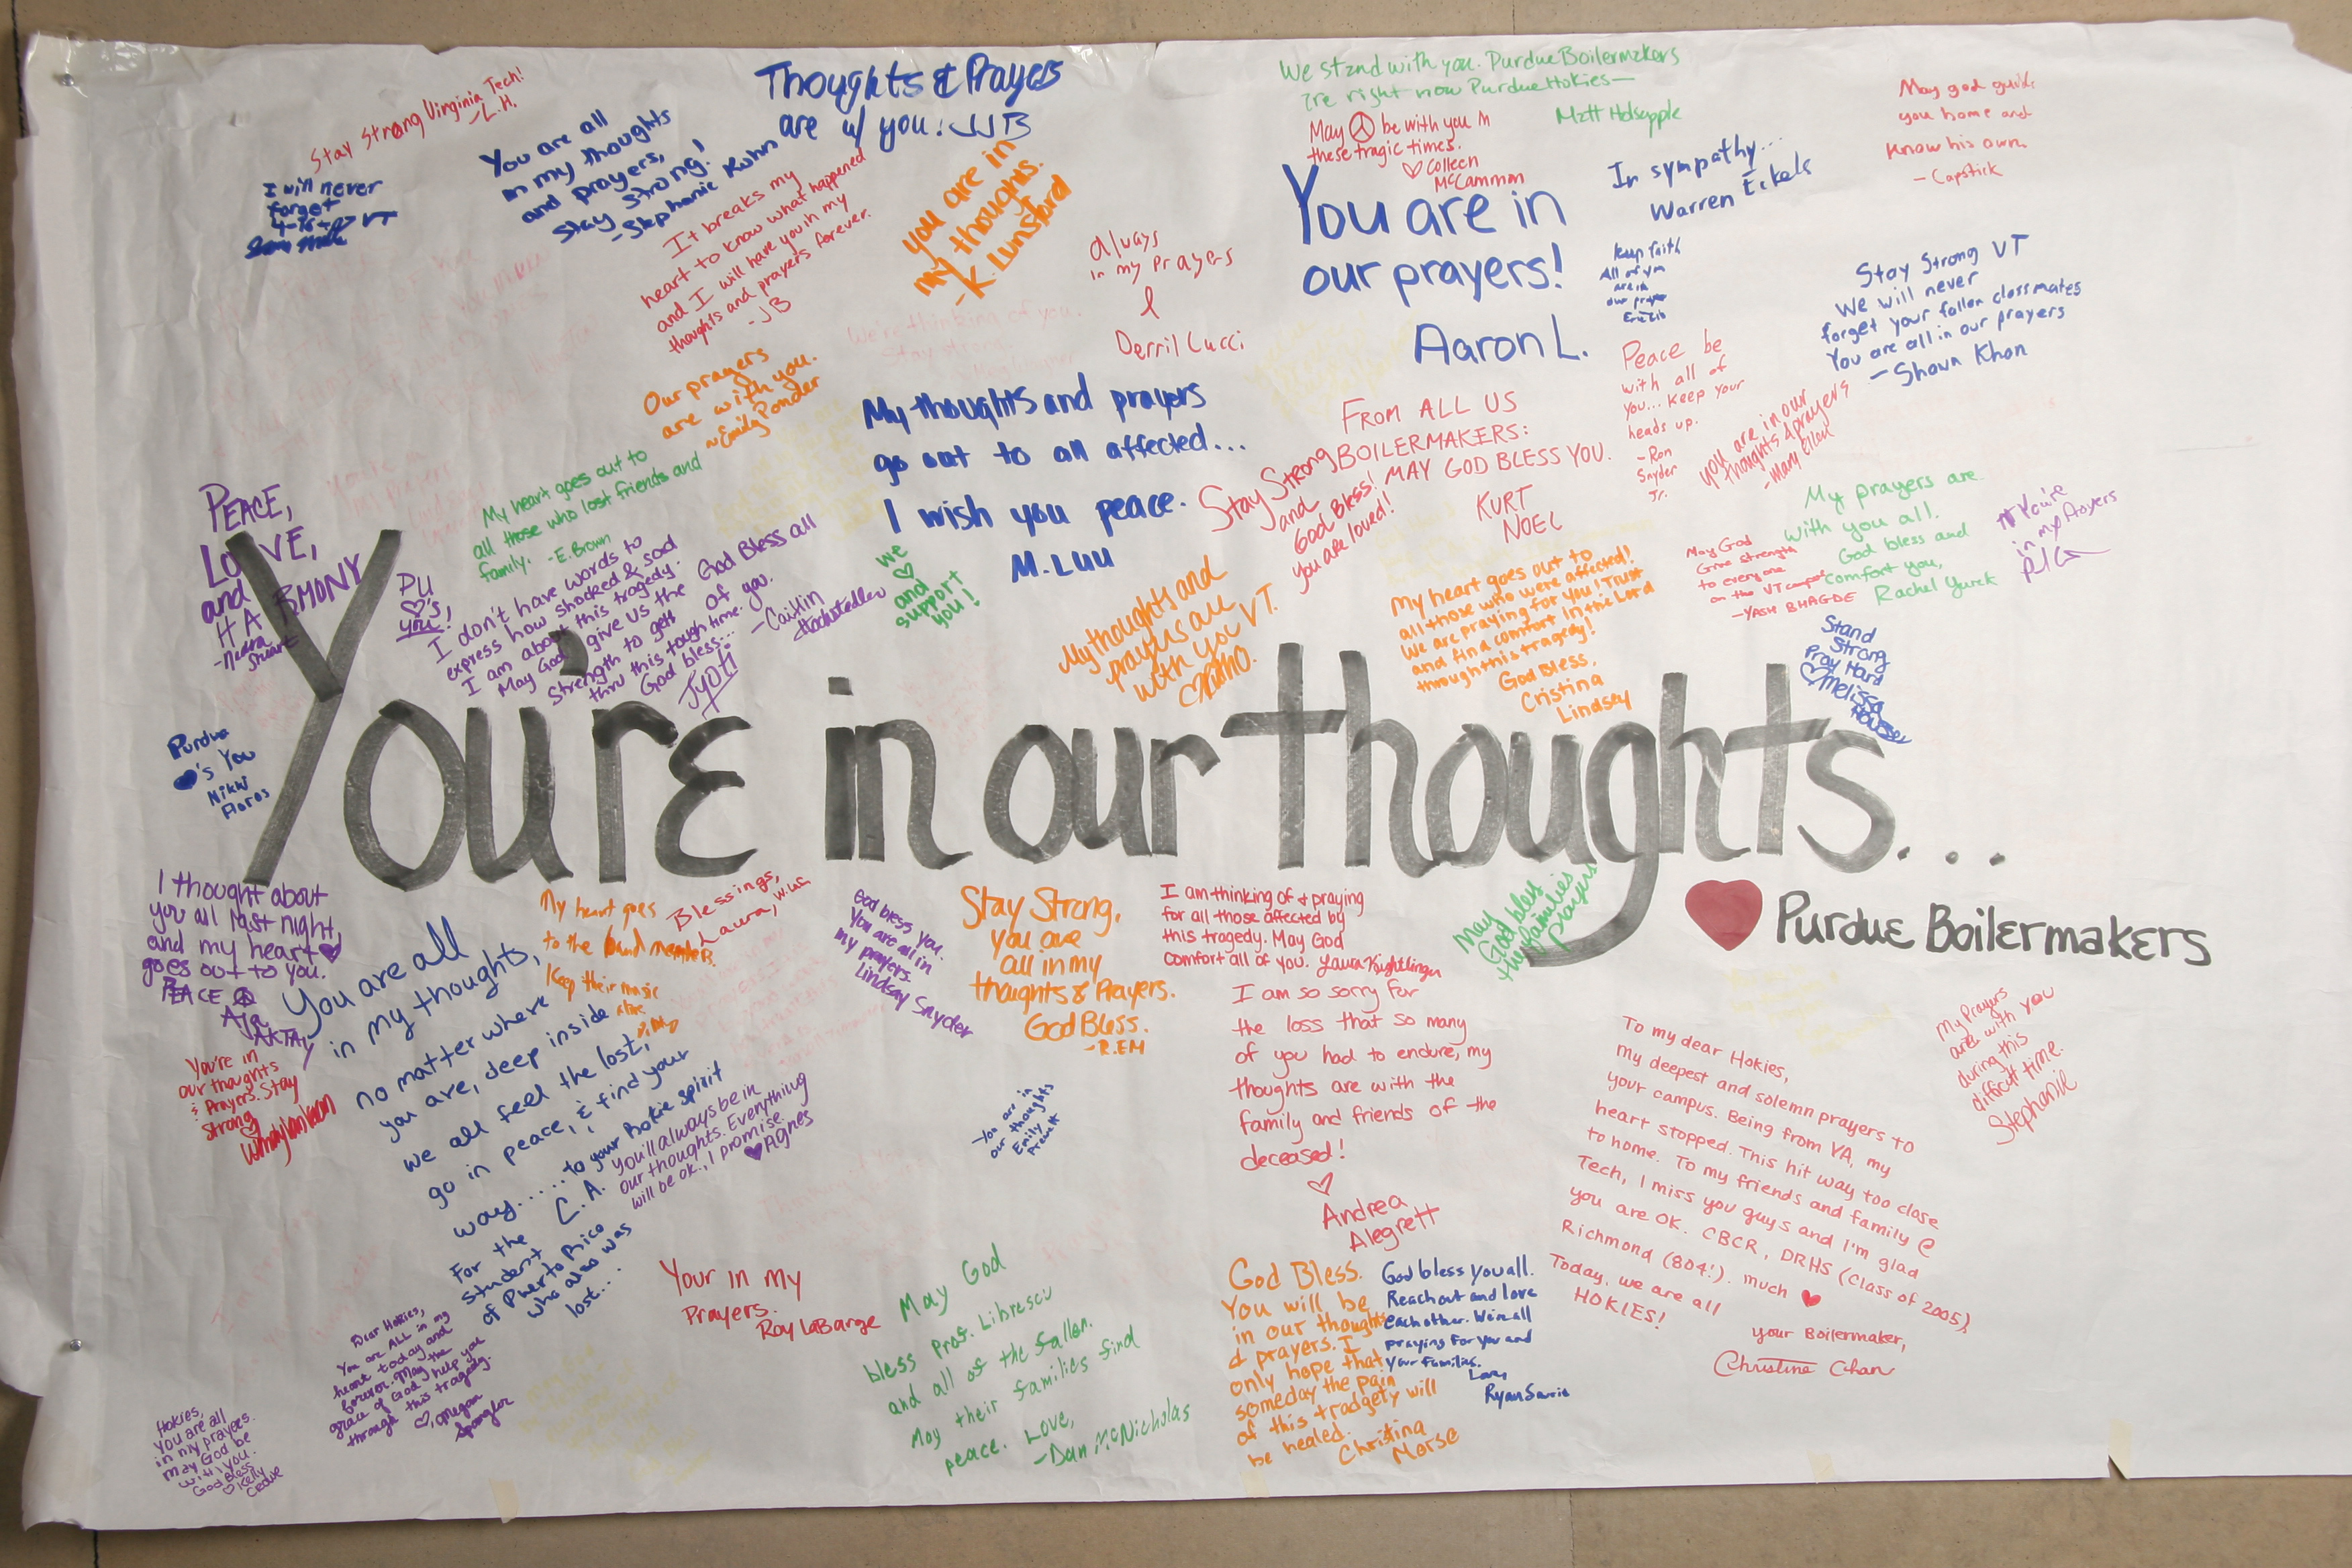 Stay Strong Virginia Tech!
-L.H.
I will never
forget
VT
You are all
in my thoughts
and prayers,
Stay Strong!
-Stephanie Kuhn
Thoughts & Prayers
are w/ you! JJB
It breaks my
heart to know what happened
and I will have you in my
thoughts and prayers forever.
-JB
you are in
my thoughts.
-K. Lunsford
Always
in my Prayers
Derril Lucci
We stand with you. Purdue Boilermakers
are right now Purdue Hokies—
Matt Holsapple
May be with you in
these tragic times.
♡ Colleen
McCammon
You are in
our prayers!
Aaron L.
In sympathy...
Warren Eckels
keep faith
All of you
are in
our prayer
May god guide
you home and
know his own.
- Capstick
Stay Strong VT
We will never
forget your fallen classmates
You are all in our prayers
- Shawn Khan
We're thinking of you.
Stay strong.
Our prayers
are with you.
~Emily Ponder
My thoughts and prayers
go out to all affected...
I wish you peace.
M. Luu
FROM ALL US
BOILERMAKERS:
MAY GOD BLESS YOU.
KURT
NOEL
Stay Strong
and
God Bless!
You are loved!
Peace be
with all of
you... Keep your
heads up.
-Ron
Snyder
Jr.
you are in our
thoughts & prayers
-Mary Ellen
My prayers are
with you all.
God bless and
comfort you,
Rachel Yurck
You're
in my Prayers
May God
Give strength
to everyone
on the VT campus
-YASH BHAGDE
PEACE,
LOVE,
and
HARMONY
Stuart
PU
♡'s
you!
My heart goes out to
all those who lost friends and
family. -E. Brown
I don't have words to
express how shocked & sad
I am about this tragedy.
May God give us the
strength to get
thru this tough time.
God bless...
JYOTI
God Bless all
of you.
-Caitlin
Hochstedler
We
♡
and
support
you!
My thoughts and
prayers are
with you VT.
My heart goes out to
all those who were affected!
We are praying for you! Trust
and find comfort in the Lord
through this tragedy!
God Bless,
Cristina
Lindsey
Stand
Strong
Pray Hard
♡ Melissa
Houser
Purdue
♥'s You
Nikki
Flores
You're in our thoughts...
♥ Purdue Boilermakers
I thought about
you all last night,
and my heart ♥
goes out to you.
PEACE
AKTAY
My heart goes
to the band members.
Keep their music
alive
Blessings,
Laura,
God bless you.
You are all in
my prayers.
Lindsay Snyder
Stay Strong,
you are
all in my
thoughts & Prayers.
God Bless.
-R.EM
I am thinking of & praying
for all those affected by
this tragedy. May God
comfort all of you. Laura Knightlinger
May
God bless
the families
prayers
You are all
in my thoughts,
no matter where
you are, deep inside
we all feel the lost,
go in peace, & find your
way..... to your Hokie spirit
C.A.
For the
student
of Puerto Rico
who also was
lost...
You're in
our thoughts
& Prayers. Stay
strong
you'll always be in
our thoughts. Everything
will be ok., I promise.
♥ Agnes
You are in
our thoughts
Emily
Prewett
I am so sorry for
the loss that so many
of you had to endure, my
thoughts are with the
family and friends of the
deceased!
♡
Andrea
Alegrett
To my dear Hokies,
my deepest and solemn prayers to
your campus. Being from VA, my
heart stopped. This hit way too close
to home. To my friends and family @
Tech, I miss you guys and I'm glad
you are OK. CBCR, DRHS (Class of 2005),
Richmond (804!). much ♥
Today, we are all
HOKIES!
your Boilermaker,
Christine Chan
My Prayers
are with you
during this
difficult time.
Stephanie
Your in my
Prayers.
Ray LaBarge
May God
bless Prof. Librescu
and all of the fallen.
May their families find
peace. Love,
-Dan McNicholas
God Bless.
You will be
in our thoughts
& prayers. I
only hope that
someday the pain
of this tradgety will
be healed.
Christina
Morse
God bless you all.
Reach out and love
each other. We're all
praying for you and
your families.
Love,
Ryan
Dear Hokies,
You are ALL in my
heart today and
forever. May the
grace of God help you
through this tragedy.
♡, Megan
Spangler
Hokies,
You are all
in my prayers.
may God be
with you.
God Bless
♡ Kelly